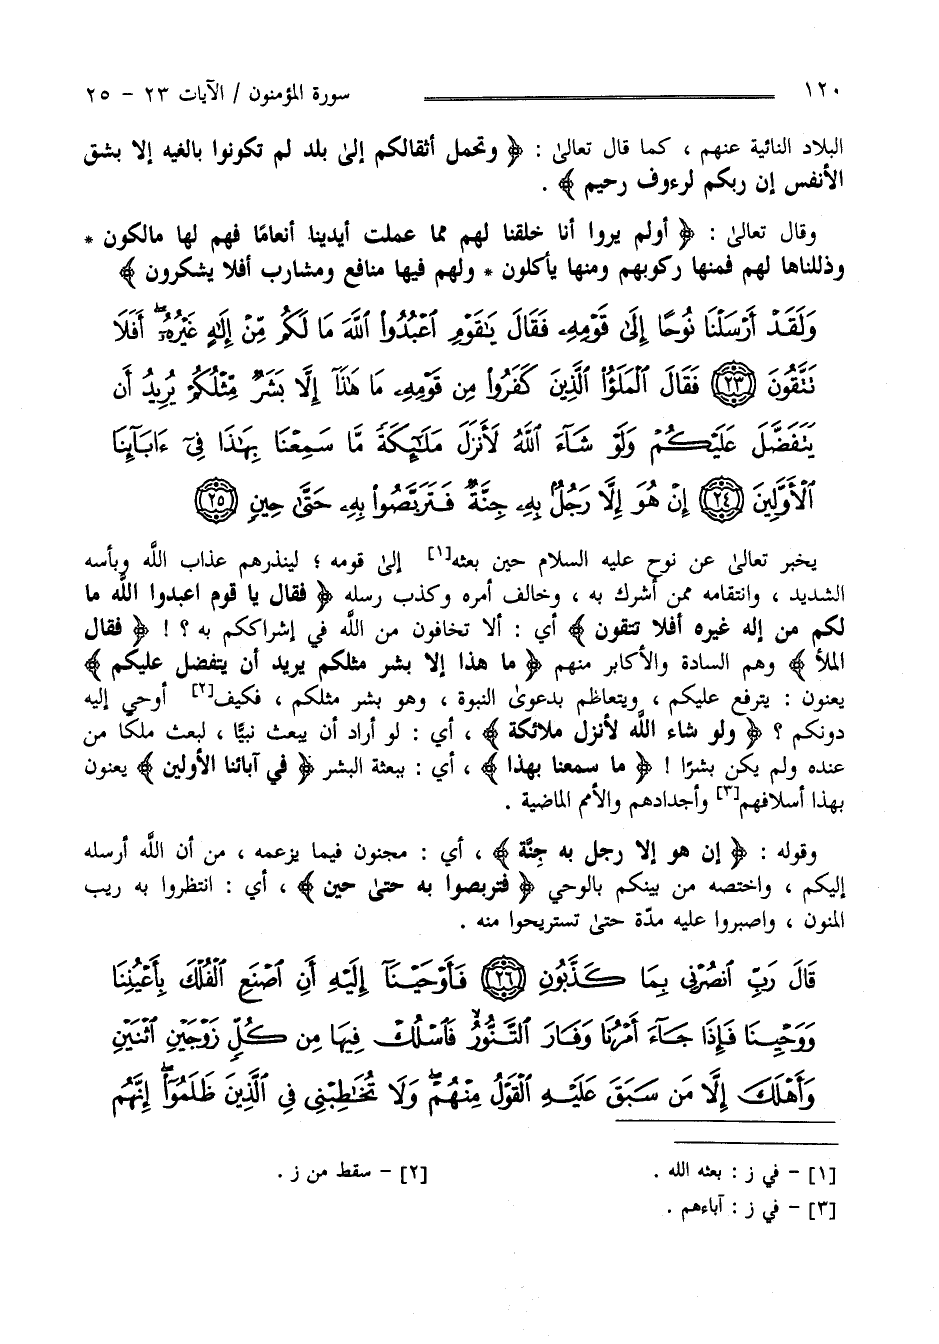 ١٢٠ سورة المؤمنون / الآيات ٢٣ - ٢٥
البلاد النائية عنهم ، كما قال تعالىٰ : ﴿ وتحمل أثقالكم إلىٰ بلد لم تكونوا بالغيه إلا بشق
الأنفس إن ربكم لرءوف رحيم ﴾ .
وقال تعالىٰ : ﴿ أولم يروا أنا خلقنا لهم مما عملت أيدينا أنعامًا فهم لها مالكون *
وذللناها لهم فمنها ركوبهم ومنها يأكلون * ولهم فيها منافع ومشارب أفلا يشكرون ﴾
وَلَقَدْ أَرْسَلْنَا نُوحًا إِلَىٰ قَوْمِهِۦ فَقَالَ يَٰقَوْمِ ٱعْبُدُوا۟ ٱللَّهَ مَا لَكُم مِّنْ إِلَٰهٍ غَيْرُهُۥٓ ۖ أَفَلَا
تَتَّقُونَ ﴿٢٣﴾ فَقَالَ ٱلْمَلَؤُا۟ ٱلَّذِينَ كَفَرُوا۟ مِن قَوْمِهِۦ مَا هَٰذَآ إِلَّا بَشَرٌ مِّثْلُكُمْ يُرِيدُ أَن
يَتَفَضَّلَ عَلَيْكُمْ وَلَوْ شَآءَ ٱللَّهُ لَأَنزَلَ مَلَٰٓئِكَةً مَّا سَمِعْنَا بِهَٰذَا فِىٓ ءَابَآئِنَا
ٱلْأَوَّلِينَ ﴿٢٤﴾ إِنْ هُوَ إِلَّا رَجُلٌۢ بِهِۦ جِنَّةٌ فَتَرَبَّصُوا۟ بِهِۦ حَتَّىٰ حِينٍ ﴿٢٥﴾
يخبر تعالىٰ عن نوح عليه السلام حين بعثه[١] إلىٰ قومه ؛ لينذرهم عذاب اللَّه وبأسه
الشديد ، وانتقامه ممن أشرك به ، وخالف أمره وكذب رسله ﴿ فقال يا قوم اعبدوا اللَّه ما
لكم من إله غيره أفلا تتقون ﴾ أي : ألا تخافون من اللَّه في إشراككم به ؟ ! ﴿ فقال
الملأ ﴾ وهم السادة والأكابر منهم ﴿ ما هذا إلا بشر مثلكم يريد أن يتفضل عليكم ﴾
يعنون : يترفع عليكم ، ويتعاظم بدعوىٰ النبوة ، وهو بشر مثلكم ، فكيف[٢] أوحي إليه
دونكم ؟ ﴿ ولو شاء اللَّه لأنزل ملائكة ﴾ ، أي : لو أراد أن يبعث نبيًّا ، لبعث ملكًا من
عنده ولم يكن بشرًا ! ﴿ ما سمعنا بهذا ﴾ ، أي : ببعثة البشر ﴿ في آبائنا الأولين ﴾ يعنون
بهذا أسلافهم[٣] وأجدادهم والأمم الماضية .
وقوله : ﴿ إن هو إلا رجل به جِنَّة ﴾ ، أي : مجنون فيما يزعمه ، من أن اللَّه أرسله
إليكم ، واختصه من بينكم بالوحي ﴿ فتربصوا به حتىٰ حين ﴾ ، أي : انتظروا به ريب
المنون ، واصبروا عليه مدّة حتىٰ تستريحوا منه .
قَالَ رَبِّ ٱنصُرْنِى بِمَا كَذَّبُونِ ﴿٢٦﴾ فَأَوْحَيْنَآ إِلَيْهِ أَنِ ٱصْنَعِ ٱلْفُلْكَ بِأَعْيُنِنَا
وَوَحْيِنَا فَإِذَا جَآءَ أَمْرُنَا وَفَارَ ٱلتَّنُّورُ ۙ فَٱسْلُكْ فِيهَا مِن كُلٍّ زَوْجَيْنِ ٱثْنَيْنِ
وَأَهْلَكَ إِلَّا مَن سَبَقَ عَلَيْهِ ٱلْقَوْلُ مِنْهُمْ ۖ وَلَا تُخَٰطِبْنِى فِى ٱلَّذِينَ ظَلَمُوٓا۟ ۖ إِنَّهُم
[١] - في ز : بعثه الله . [٢] - سقط من ز .
[٣] - في ز : آباءهم .